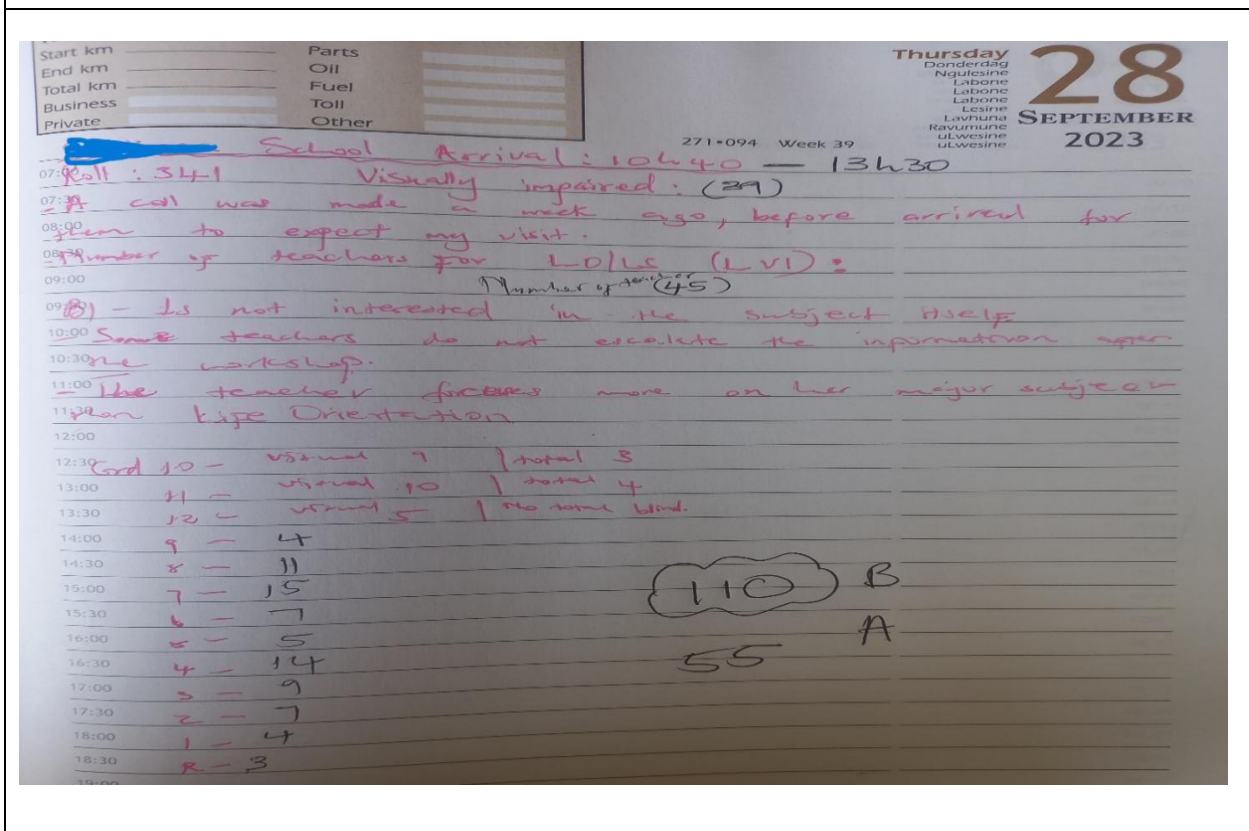 Start km Parts
End km Oil
Total km Fuel
Business Toll
Private Other
Thursday
Donderdag
Ngulesine
Labone
Labone
Labone
Lesine
Lavhuna
Ravumune
uLwesine
uLwesine
28
SEPTEMBER
2023
271•094 Week 39
School Arrival : 10h40 — 13h30
07:00 Roll : 341 Visually impaired : (29)
07:30 - A call was made a week ago, before arrived for
08:00 them to expect my visit.
08:30 - Number of teachers for LO/LS (LVI) :
09:00 Number of (45)
09:30 B) - Is not interested in the subject itself
10:00 Some teachers do not escalate the information after
10:30 the workshop.
11:00 - The teacher focuses more on her major subject
11:30 than Life Orientation
12:00
12:30 Grd 10 - visual 9 | total 3
13:00 11 - visual 10 | total 4
13:30 12 - visual 5 | No total blind.
14:00 9 - 4
14:30 8 - 11
15:00 7 - 15
110 B
15:30 6 - 7
16:00 5 - 5
A
16:30 4 - 14
55
17:00 3 - 9
17:30 2 - 7
18:00 1 - 4
18:30 R - 3
19:00